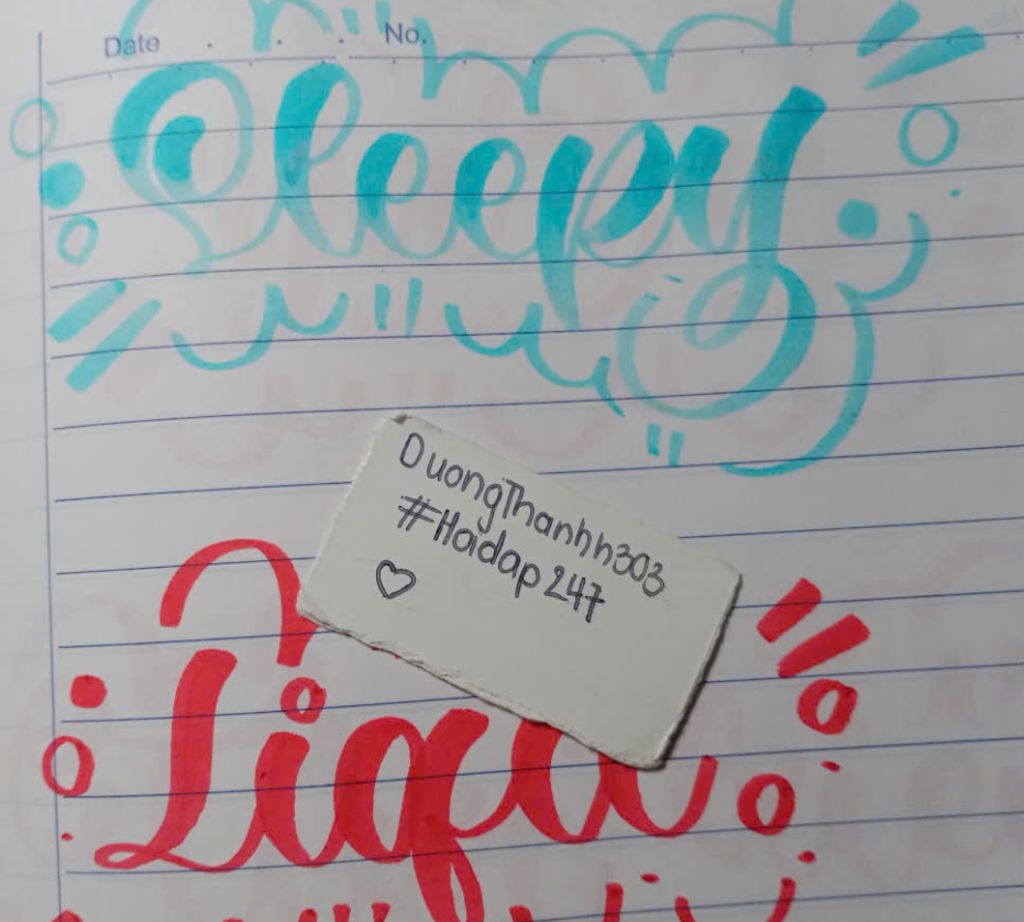 Date . . . No.
Sleepy
DuongThanhh303
#Hoidap247
Liqu